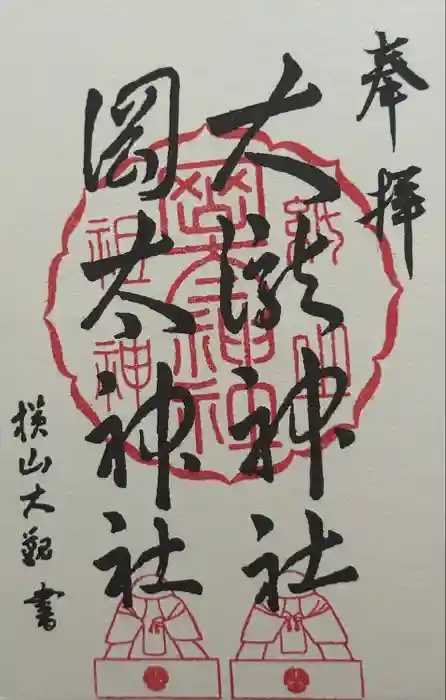 奉拝
大瀧神社
岡太神社
横山大観書